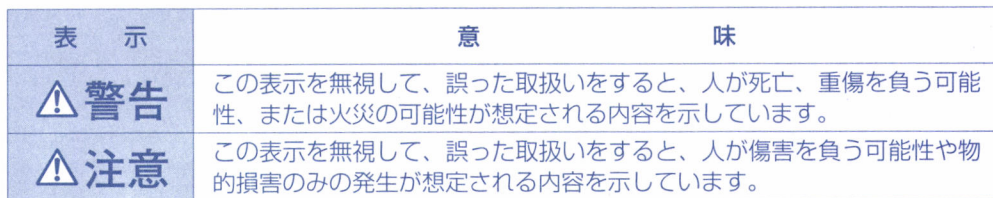 表 示 意 味
⚠警告 この表示を無視して、誤った取扱いをすると、人が死亡、重傷を負う可能
性、または火災の可能性が想定される内容を示しています。
⚠注意 この表示を無視して、誤った取扱いをすると、人が傷害を負う可能性や物
的損害のみの発生が想定される内容を示しています。